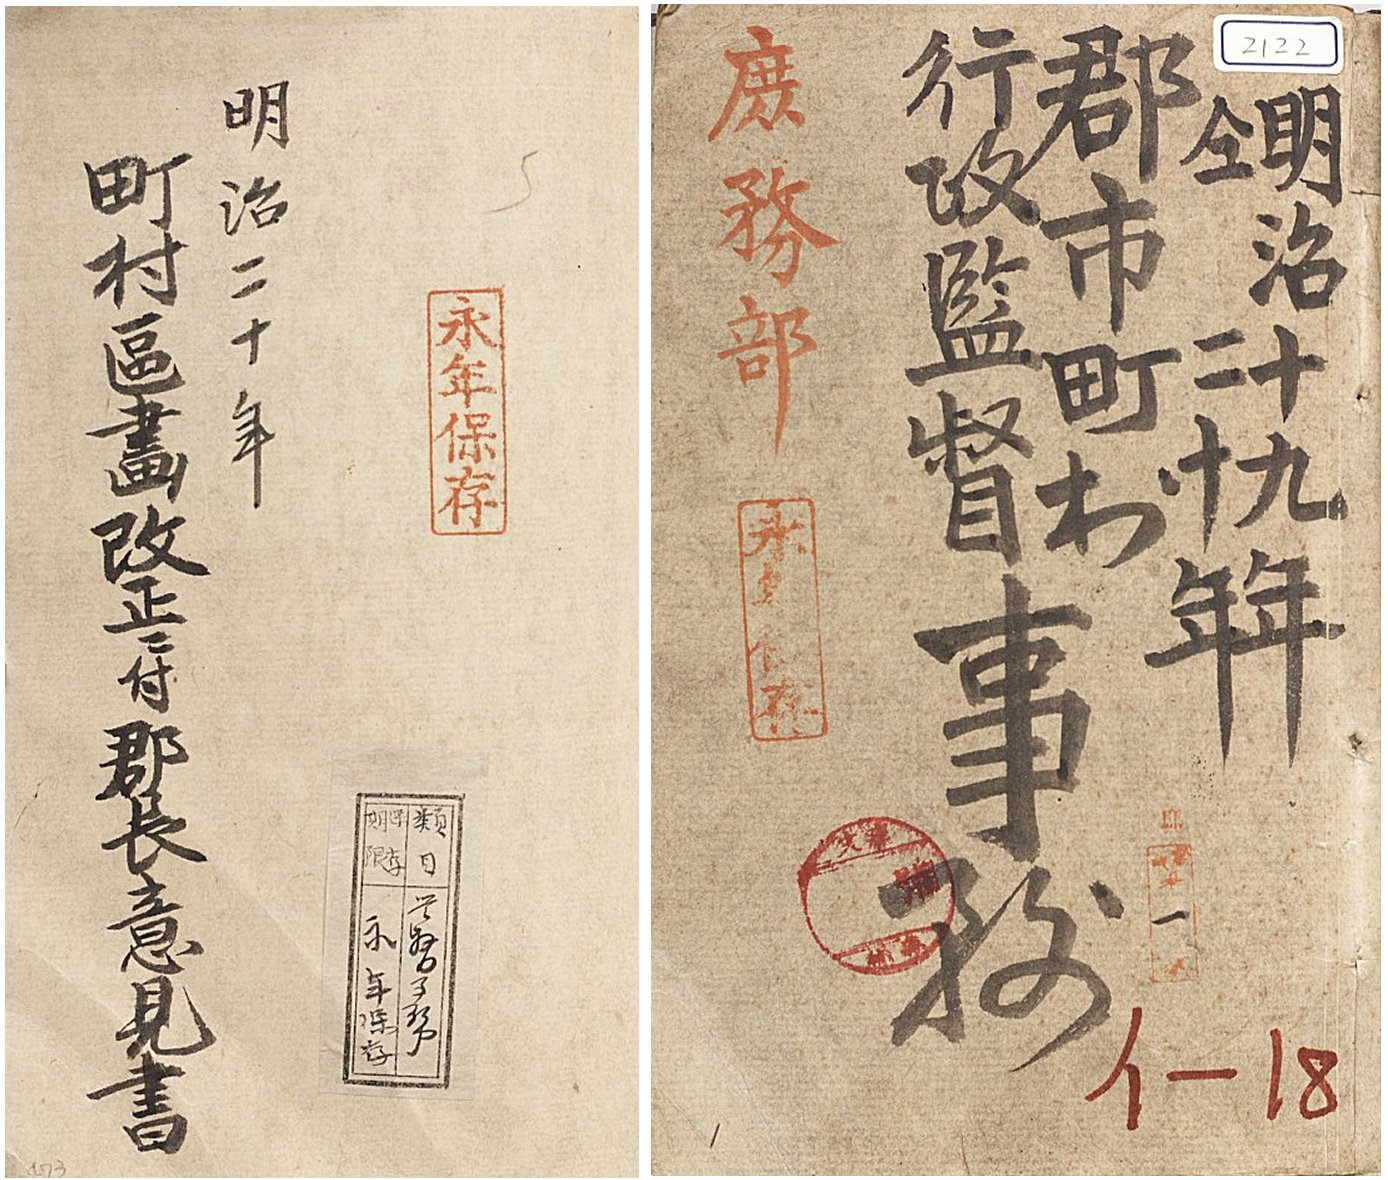 永年保存
類目 監督事務
保存期限 永年保存
明治二十年
町村區畫改正ニ付郡長意見書
2122
明治十九年
仝二十年
郡市町村
行政監督事務
庶務部
永年保存
一
イ-18